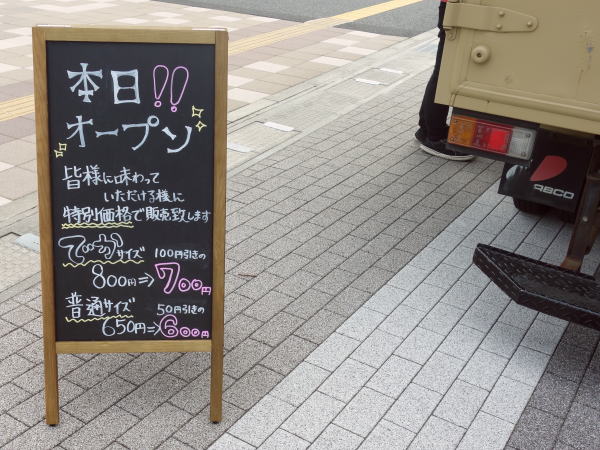 本日!!
オープン
皆様に味わって
いただける様に
特別価格で販売致します
でっかサイズ 100円引きの
800円⇒700円
普通サイズ 50円引きの
650円⇒600円
ABCO